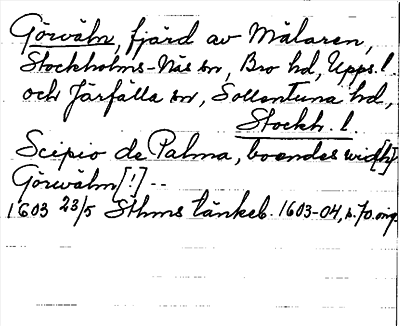 Görväln, fjärd av Mälaren,
Stockholms-Näs sn, Bro hd, Upps. l.
och Järfälla sn, Sollentuna hd,
Stockh. l.
Scipio de Palma, boendes wid[h]
Görwälm [!] --
1603 23/5 Sthms tänkeb. 1603-04, s. 70. orig.